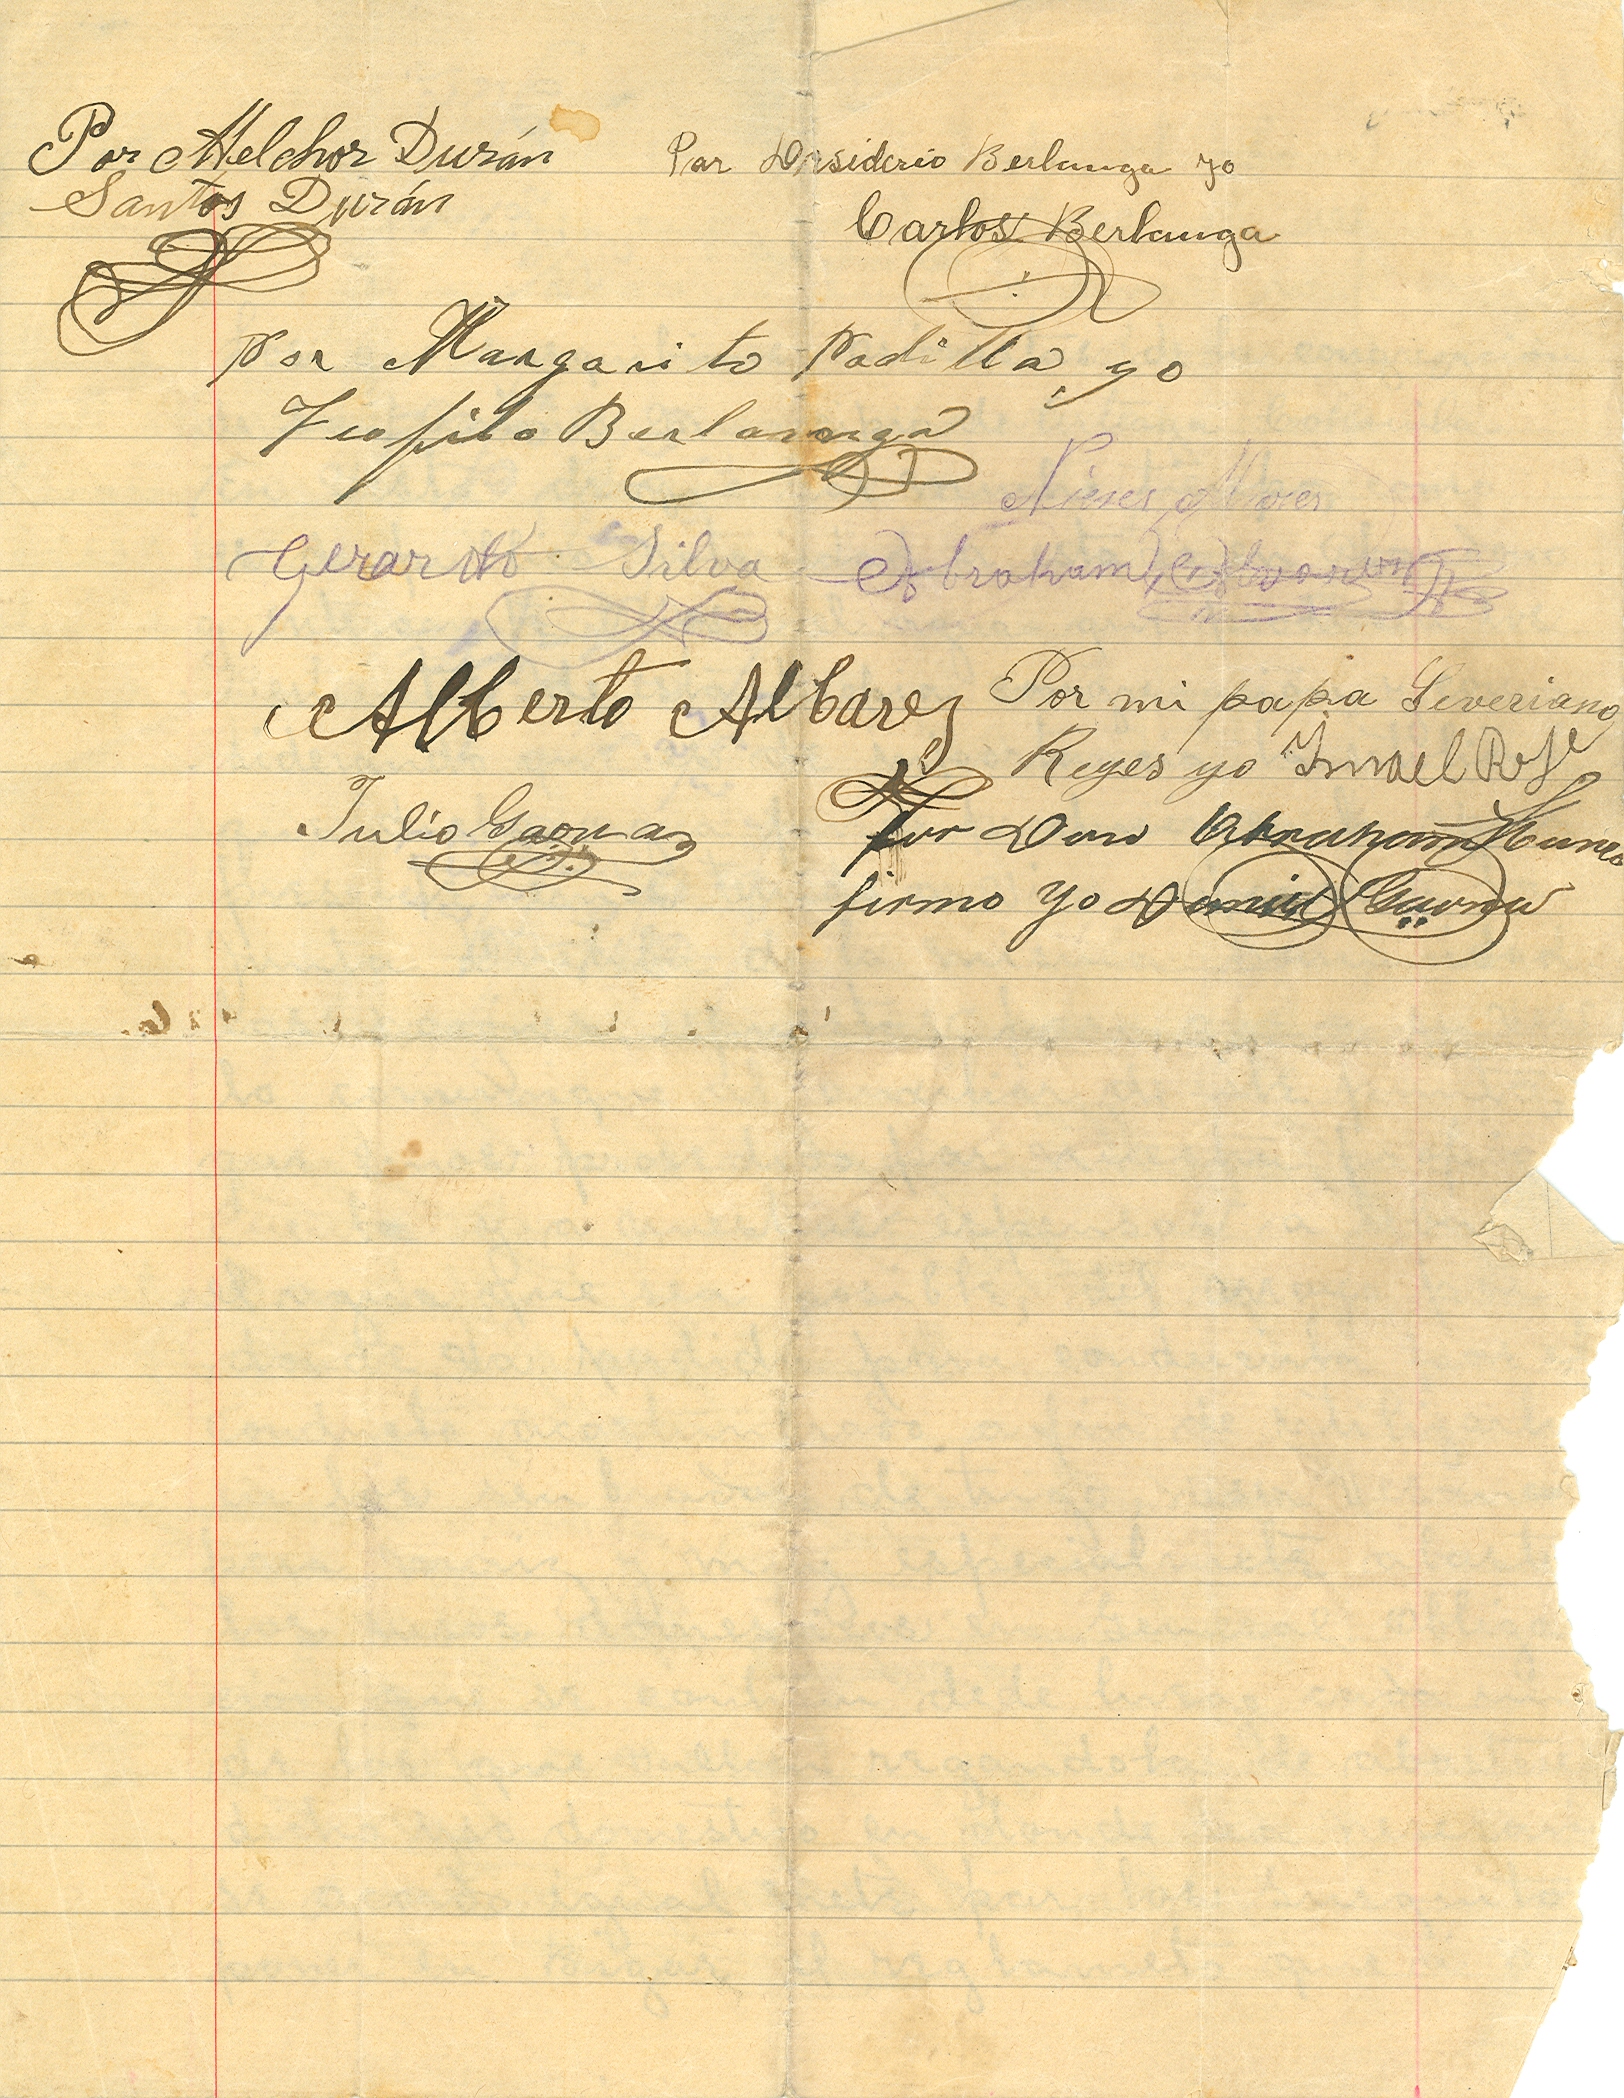 Por Melchor Durán
Santos Durán
Por Desiderio Berlanga yo
Carlos Berlanga
por Margarito Padilla yo
Teofilo Berlanga
Nieves
Gerardo Silva
Abraham
Alberto Albarez
Por mi papa Severiano
Reyes yo Ismael
Julio Gaona
Por Don Abraham
firmo yo Daniel Gaona